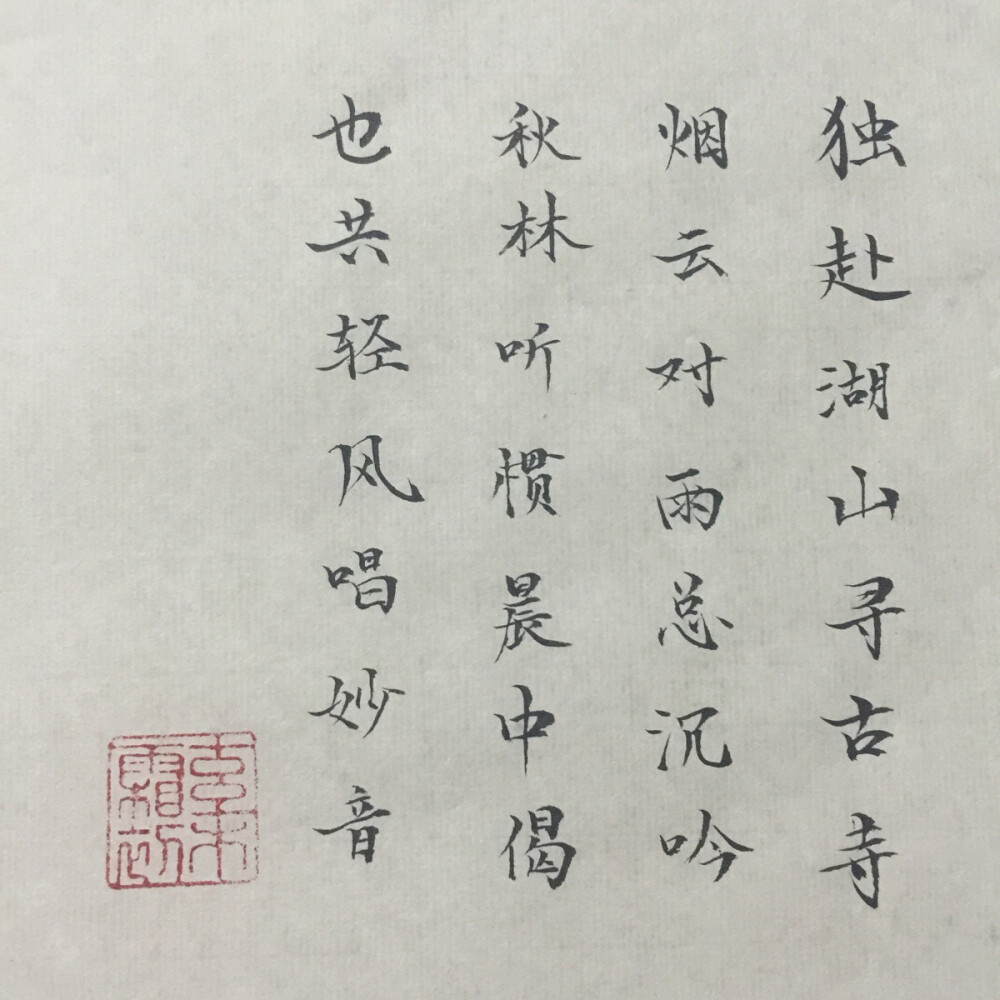 独赴湖山寻古寺
烟云对雨总沉吟
秋林听惯晨中偈
也共轻风唱妙音